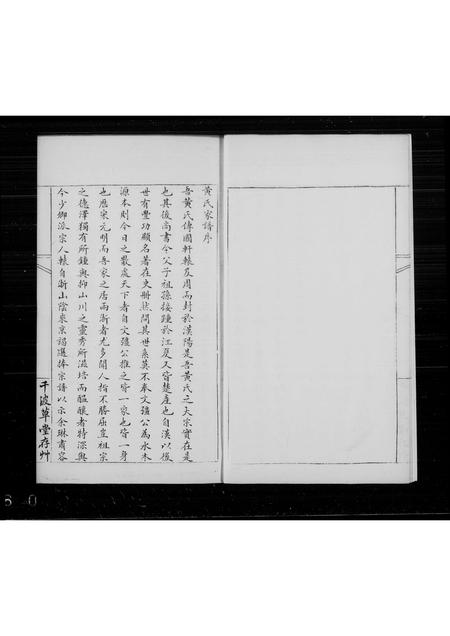 黃氏家譜序
吾黃氏傳國軒轅及周而封於漢陽是吾黃氏之大宗實在是
也其後尚書令父子祖孫接踵於江夏又皆楚產也自漢以後
世有豐功顯名著在史冊然間其世系莫不奉文彊公為水木
源本則今日之散處天下者自文彊公推之皆一家也皆一身
也歷宋元明而吾家之居而浙者尤多聞人指不勝屈豈祖宗
之德澤獨有所鍾與抑山川之靈秀所滋培而醞釀者特深與
今少鄉派宗人轅自浙山陰來京謁選捧宗譜以示余琳肅容
千波草堂存艸
8 0